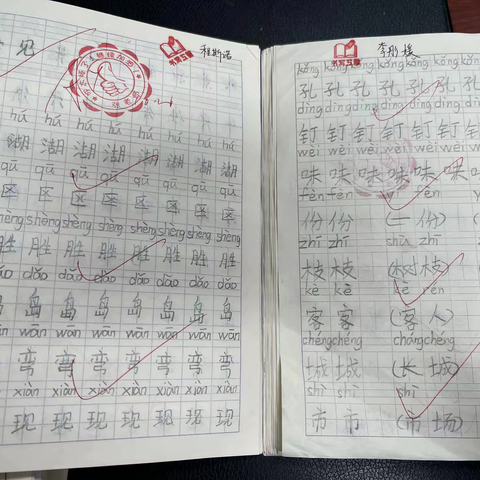 程斯诺
hú hú hú hú hú hú
湖 湖 湖 湖 湖 湖
qū qū qū qū qū qū
区 区 区 区 区 区
shèng shèng shèng shèng shèng shèng
胜 胜 胜 胜 胜 胜
dǎo dǎo dǎo dǎo dǎo dǎo
岛 岛 岛 岛 岛 岛
wān wān wān wān wān wān
弯 弯 弯 弯 弯 弯
xiàn xiàn xiàn xiàn xiàn xiàn
现 现 现 现 现 现
李彤媛
kǒng kǒng kǒng kǒng kǒng kǒng
孔 孔 孔 孔 孔 孔 孔
dīng dīng dīng dīng dīng dīng
钉 钉 钉 钉 钉 钉
wèi wèi wèi wèi wèi wèi
味 味 味 味 味 味
fèn fèn yí fèn
份 份 (一 份)
zhī zhī shù zhī
枝 枝 (树 枝)
kè kè kè rén
客 客 (客 人)
chéng chéng cháng chéng
城 城 (长 城)
shì shì shì
市 市 (市 场)